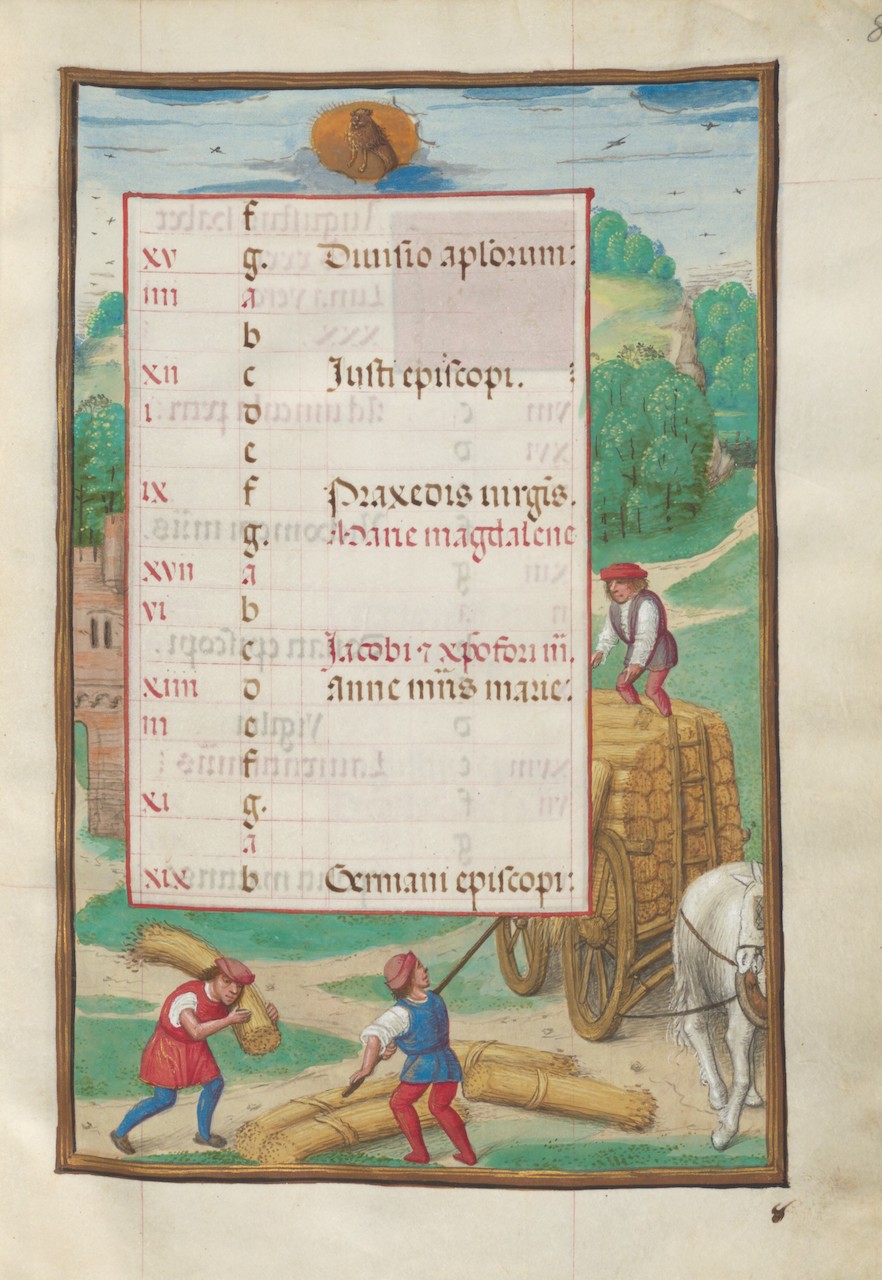 8
f
xv g. Diuisio aplorum:
iiii a
b
xii c Justi episcopi.
i d
e
ix f Praxedis uirgis.
g. Marie magdalene
xvii a
vi b
c Jacobi ⁊ xpofori m̄.
xiiii d Anne mr̄is marie:
iii e
f
xi g.
a
xix b Germani episcopi:
8